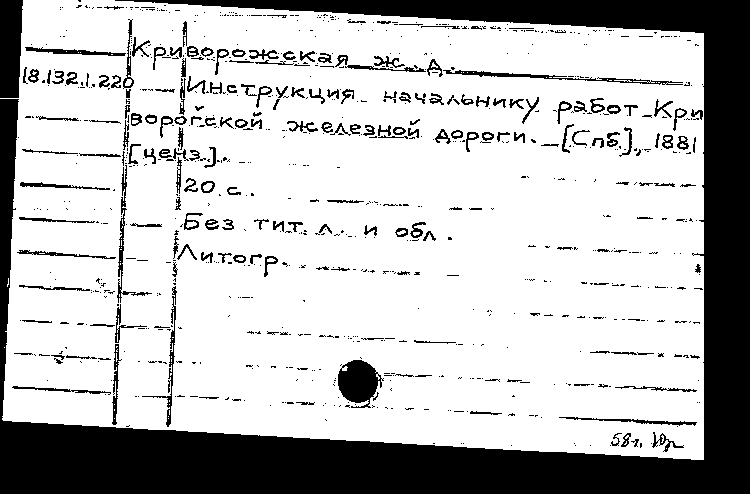 Криворожская ж. д.
18.132.1.220 Инструкция начальнику работ Кри
ворожской железной дороги. [Спб], 1881
[ценз].
20 с.
Без тит. л. и обл.
Литогр.
58 г.